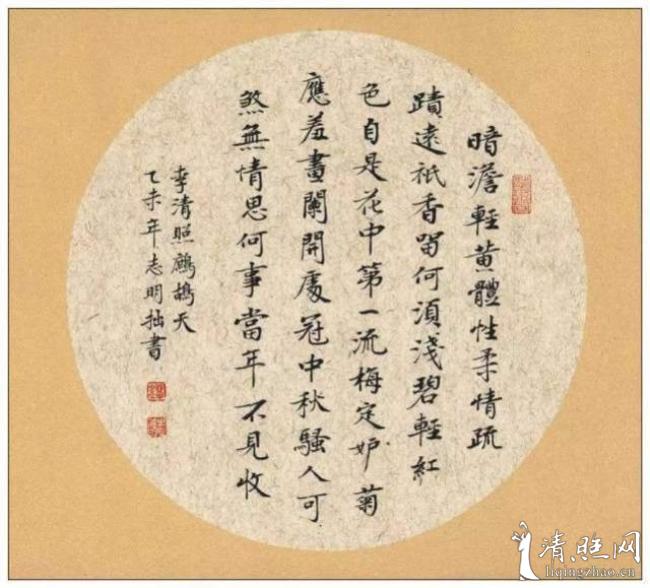 暗澹輕黄體性柔情疏
蹟遠祇香留何湏淺碧輕紅
色自是花中第一流梅定妒菊
應羞畫闌開處冠中秋騷人可
煞無情思何事當年不見收
李清照鷓鴣天
乙未年志明拙書
清旺网
liqingzhao.cn